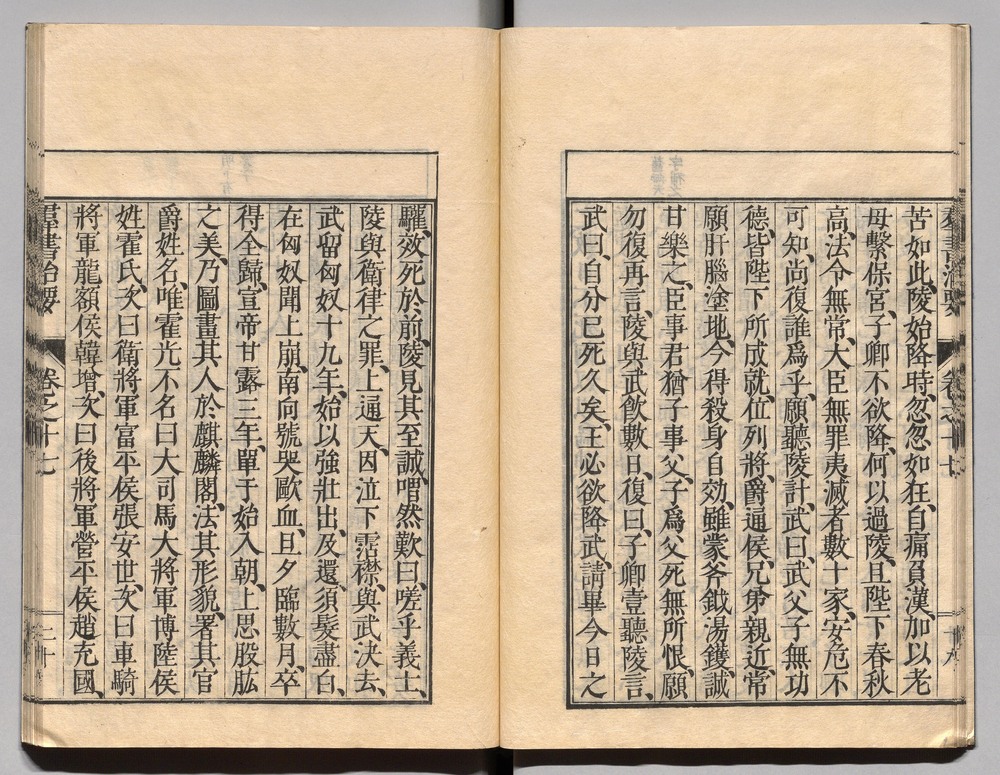 羣書治要
卷之十七
十九
苦如此、陵始降時、忽忽如狂、自痛負漢、加以老
母繫保宮、子卿不欲降、何以過陵、且陛下春秋
高、法令無常、大臣無罪夷滅者數十家、安危不
可知、尚復誰爲乎、願聽陵計、武曰、武父子無功
德、皆陛下所成就、位列將、爵通侯、兄弟親近、常
願肝腦塗地、今得殺身自効、雖蒙斧鉞湯鑊、誠
甘樂之、臣事君猶子事父、子爲父死無所恨、願
勿復再言、陵與武飮數日、復曰、子卿壹聽陵言、
武曰、自分已死久矣、王必欲降武、請畢今日之
驩、效死於前、陵見其至誠、喟然歎曰、嗟乎義士、
陵與衛律之罪、上通天、因泣下霑襟、與武決去、
武留匈奴十九年、始以強壯出、及還、須髮盡白、
在匈奴聞上崩、南向號哭歐血、旦夕臨數月、卒
得全歸、宣帝甘露三年、單于始入朝、上思股肱
之美、乃圖畫其人於麒麟閣、法其形貌、署其官
爵姓名、唯霍光不名曰大司馬大將軍博陸侯
姓霍氏、次曰衛將軍富平侯張安世、次曰車騎
將軍龍額侯韓增、次曰後將軍營平侯趙充國、
羣書治要
卷之十七
二十